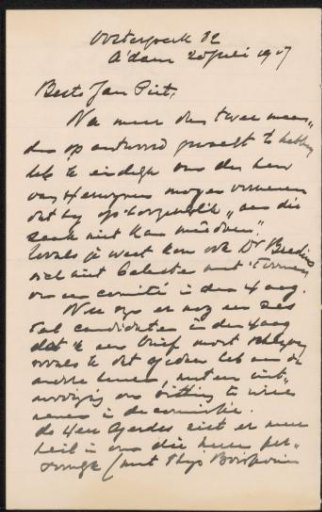 Oosterpark 82
A'dam 20 Juli 1917
Beste Jan Piet,
Na meer dan twee maan-
den op antwoord gewacht te hebben
heb ik eindelijk van den heer
van mogen vernemen
dat hij op 't oogenblik "aan die
zaak niet kan meedoen".
Zooals je weet kon ook Dr Bredius
zich niet belasten met 't vormen
van een comité in den Haag.
Nu zijn er nog een zes
tal candidaten in den Haag
dat ik een brief moet schrijven
zooals ik dat gedaan heb aan de
andere heeren, met een uit-
noodiging om zitting te willen
nemen in de commissie.
De Heer ziet er meer
heil in om die heeren per-
soonlijk (met Thijs